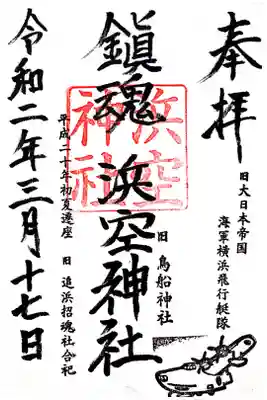 奉拝
旧大日本帝国
海軍横浜飛行艇隊
鎮魂 浜空神社
旧 鳥船神社
浜空
神社
平成二十年初夏遷座
旧 追浜招魂社合祀
令和二年三月十七日